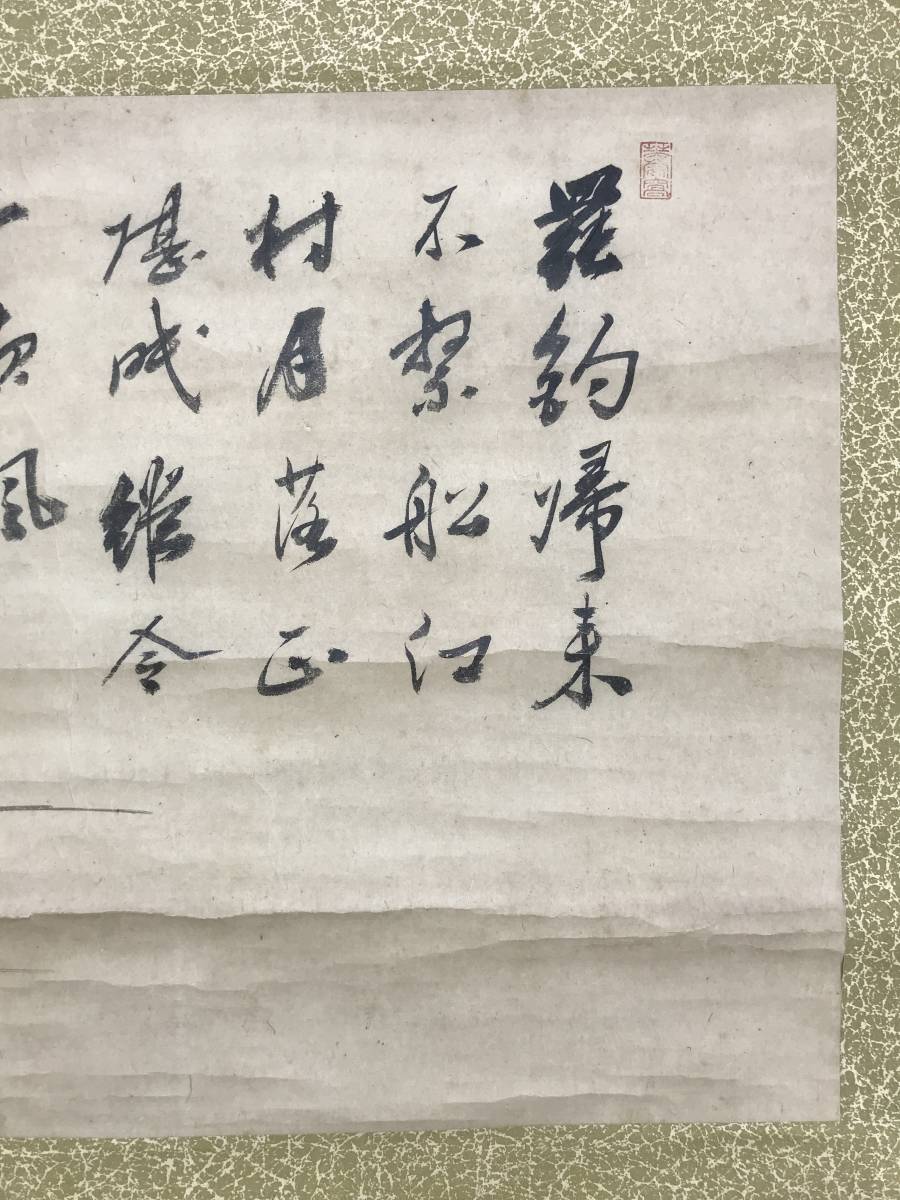 罷釣帰来
不繫船江
村月落正
堪眠縱令
風